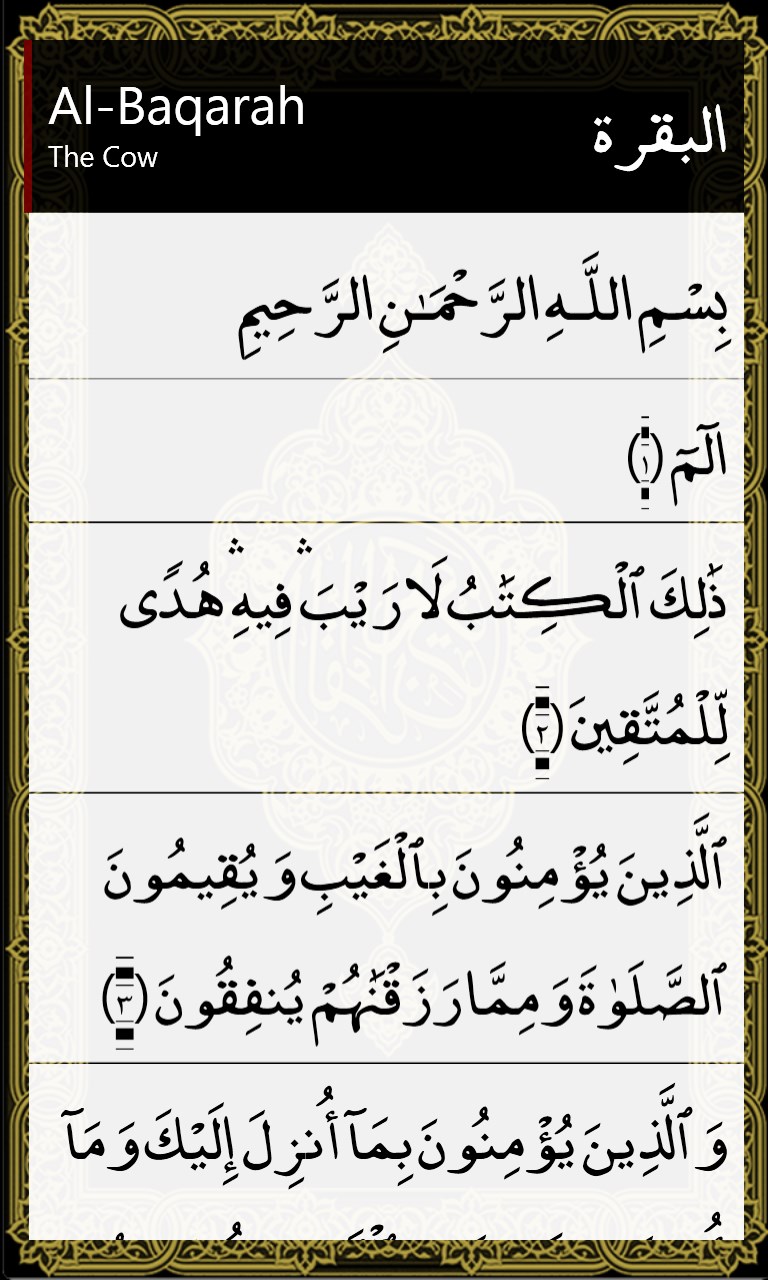 Al-Baqarah
البقرة
The Cow
بِسْمِ اللَّـهِ الرَّحْمَـٰنِ الرَّحِيمِ
الٓمٓ ﴿١﴾
ذَٰلِكَ ٱلْكِتَٰبُ لَا رَيْبَ ۛ فِيهِ ۛ هُدًى
لِّلْمُتَّقِينَ ﴿٢﴾
ٱلَّذِينَ يُؤْمِنُونَ بِٱلْغَيْبِ وَيُقِيمُونَ
ٱلصَّلَوٰةَ وَمِمَّا رَزَقْنَٰهُمْ يُنفِقُونَ ﴿٣﴾
وَٱلَّذِينَ يُؤْمِنُونَ بِمَآ أُنزِلَ إِلَيْكَ وَمَآ